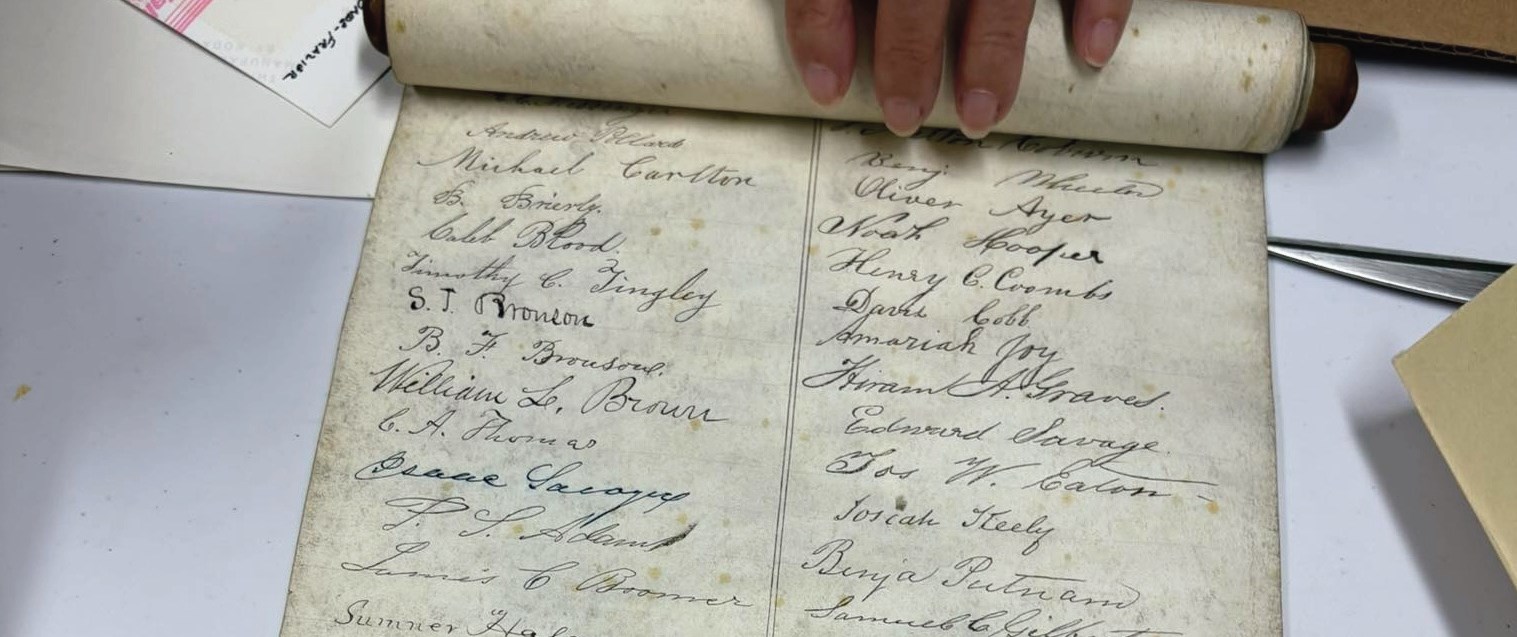 -FRAZIER
Andrew Pollard
Michael Carlton
B. Brierly.
Caleb Blood.
Timothy C. Tingley
S. T. Bronson
B. F. Bronson.
William L. Brown
C. A. Thomas
Isaac Sawyer
P. S. Adams
James C Boomer
Sumner
Colburn
Benj. Wheeler
Oliver Ayer
Noah Hooper
Henry C. Coombs
David Cobb
Amariah Joy
Hiram A. Graves.
Edward Savage.
Jos W. Eaton
Josiah Keely
Benja Putnam
Samuel C. Gilbert